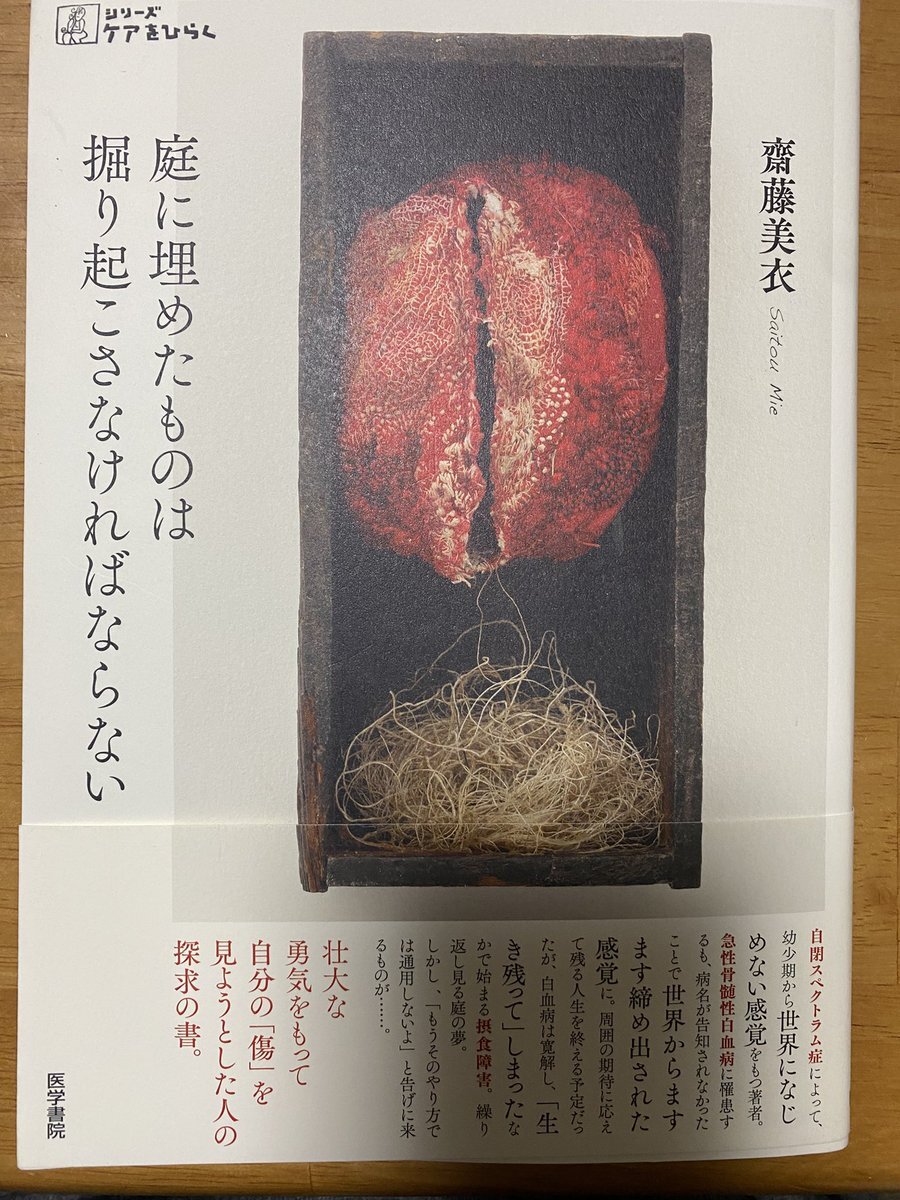 シリーズ
ケアをひらく
齋藤美衣
Saitou Mie
庭に埋めたものは
掘り起こさなければならない
自閉スペクトラム症によって、
幼少期から世界になじ
めない感覚をもつ著者。
急性骨髄性白血病に罹患す
るも、病名が告知されなかった
ことで世界からます
ます締め出された
感覚に。周囲の期待に応え
て残る人生を終える予定だっ
たが、白血病は寛解し、「生
き残って」しまったな
かで始まる摂食障害。繰り
返し見る庭の夢。
しかし、「もうそのやり方で
は通用しないよ」と告げに来
るものが……。
壮大な
勇気をもって
自分の「傷」を
見ようとした人の
探求の書。
医学書院